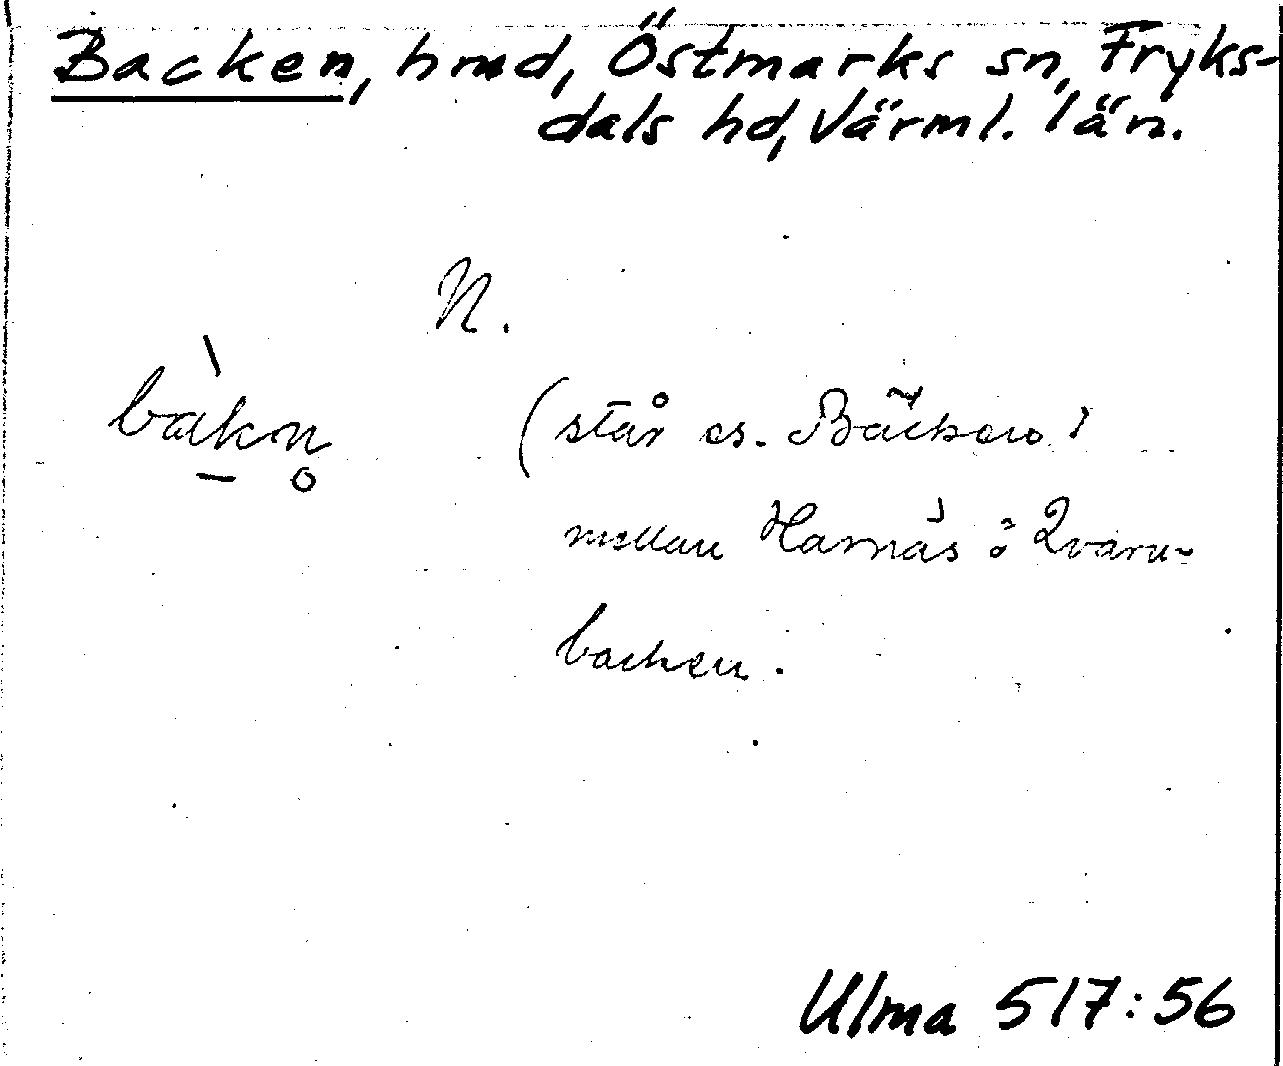 Backen, hmd, Östmarks sn, Fryks-
dals hd, Värml. län.
N.
bàkn̥
(står es. Bäcken!
mellan Harnäs o Qvarn-
backen.
Ulma 517:56